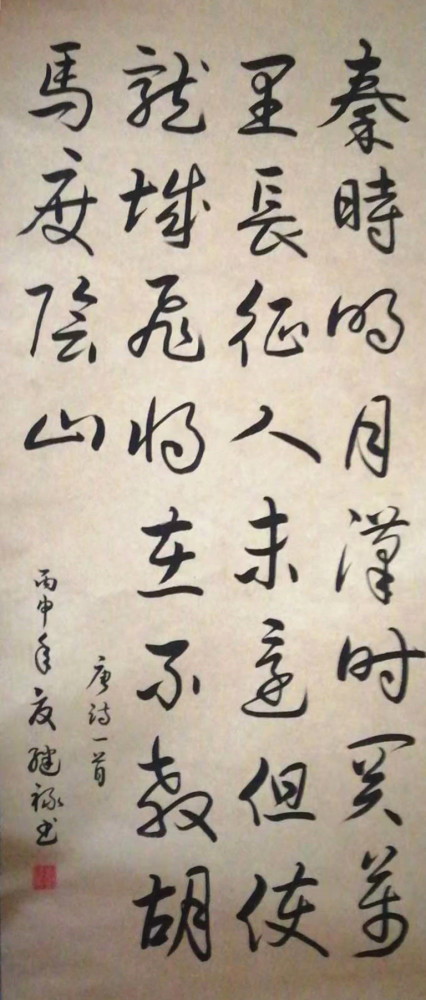 秦時明月漢时関萬
里長征人未還但使
龍城飛将在不教胡
馬度陰山
唐詩一首
丙申年夏继禄书